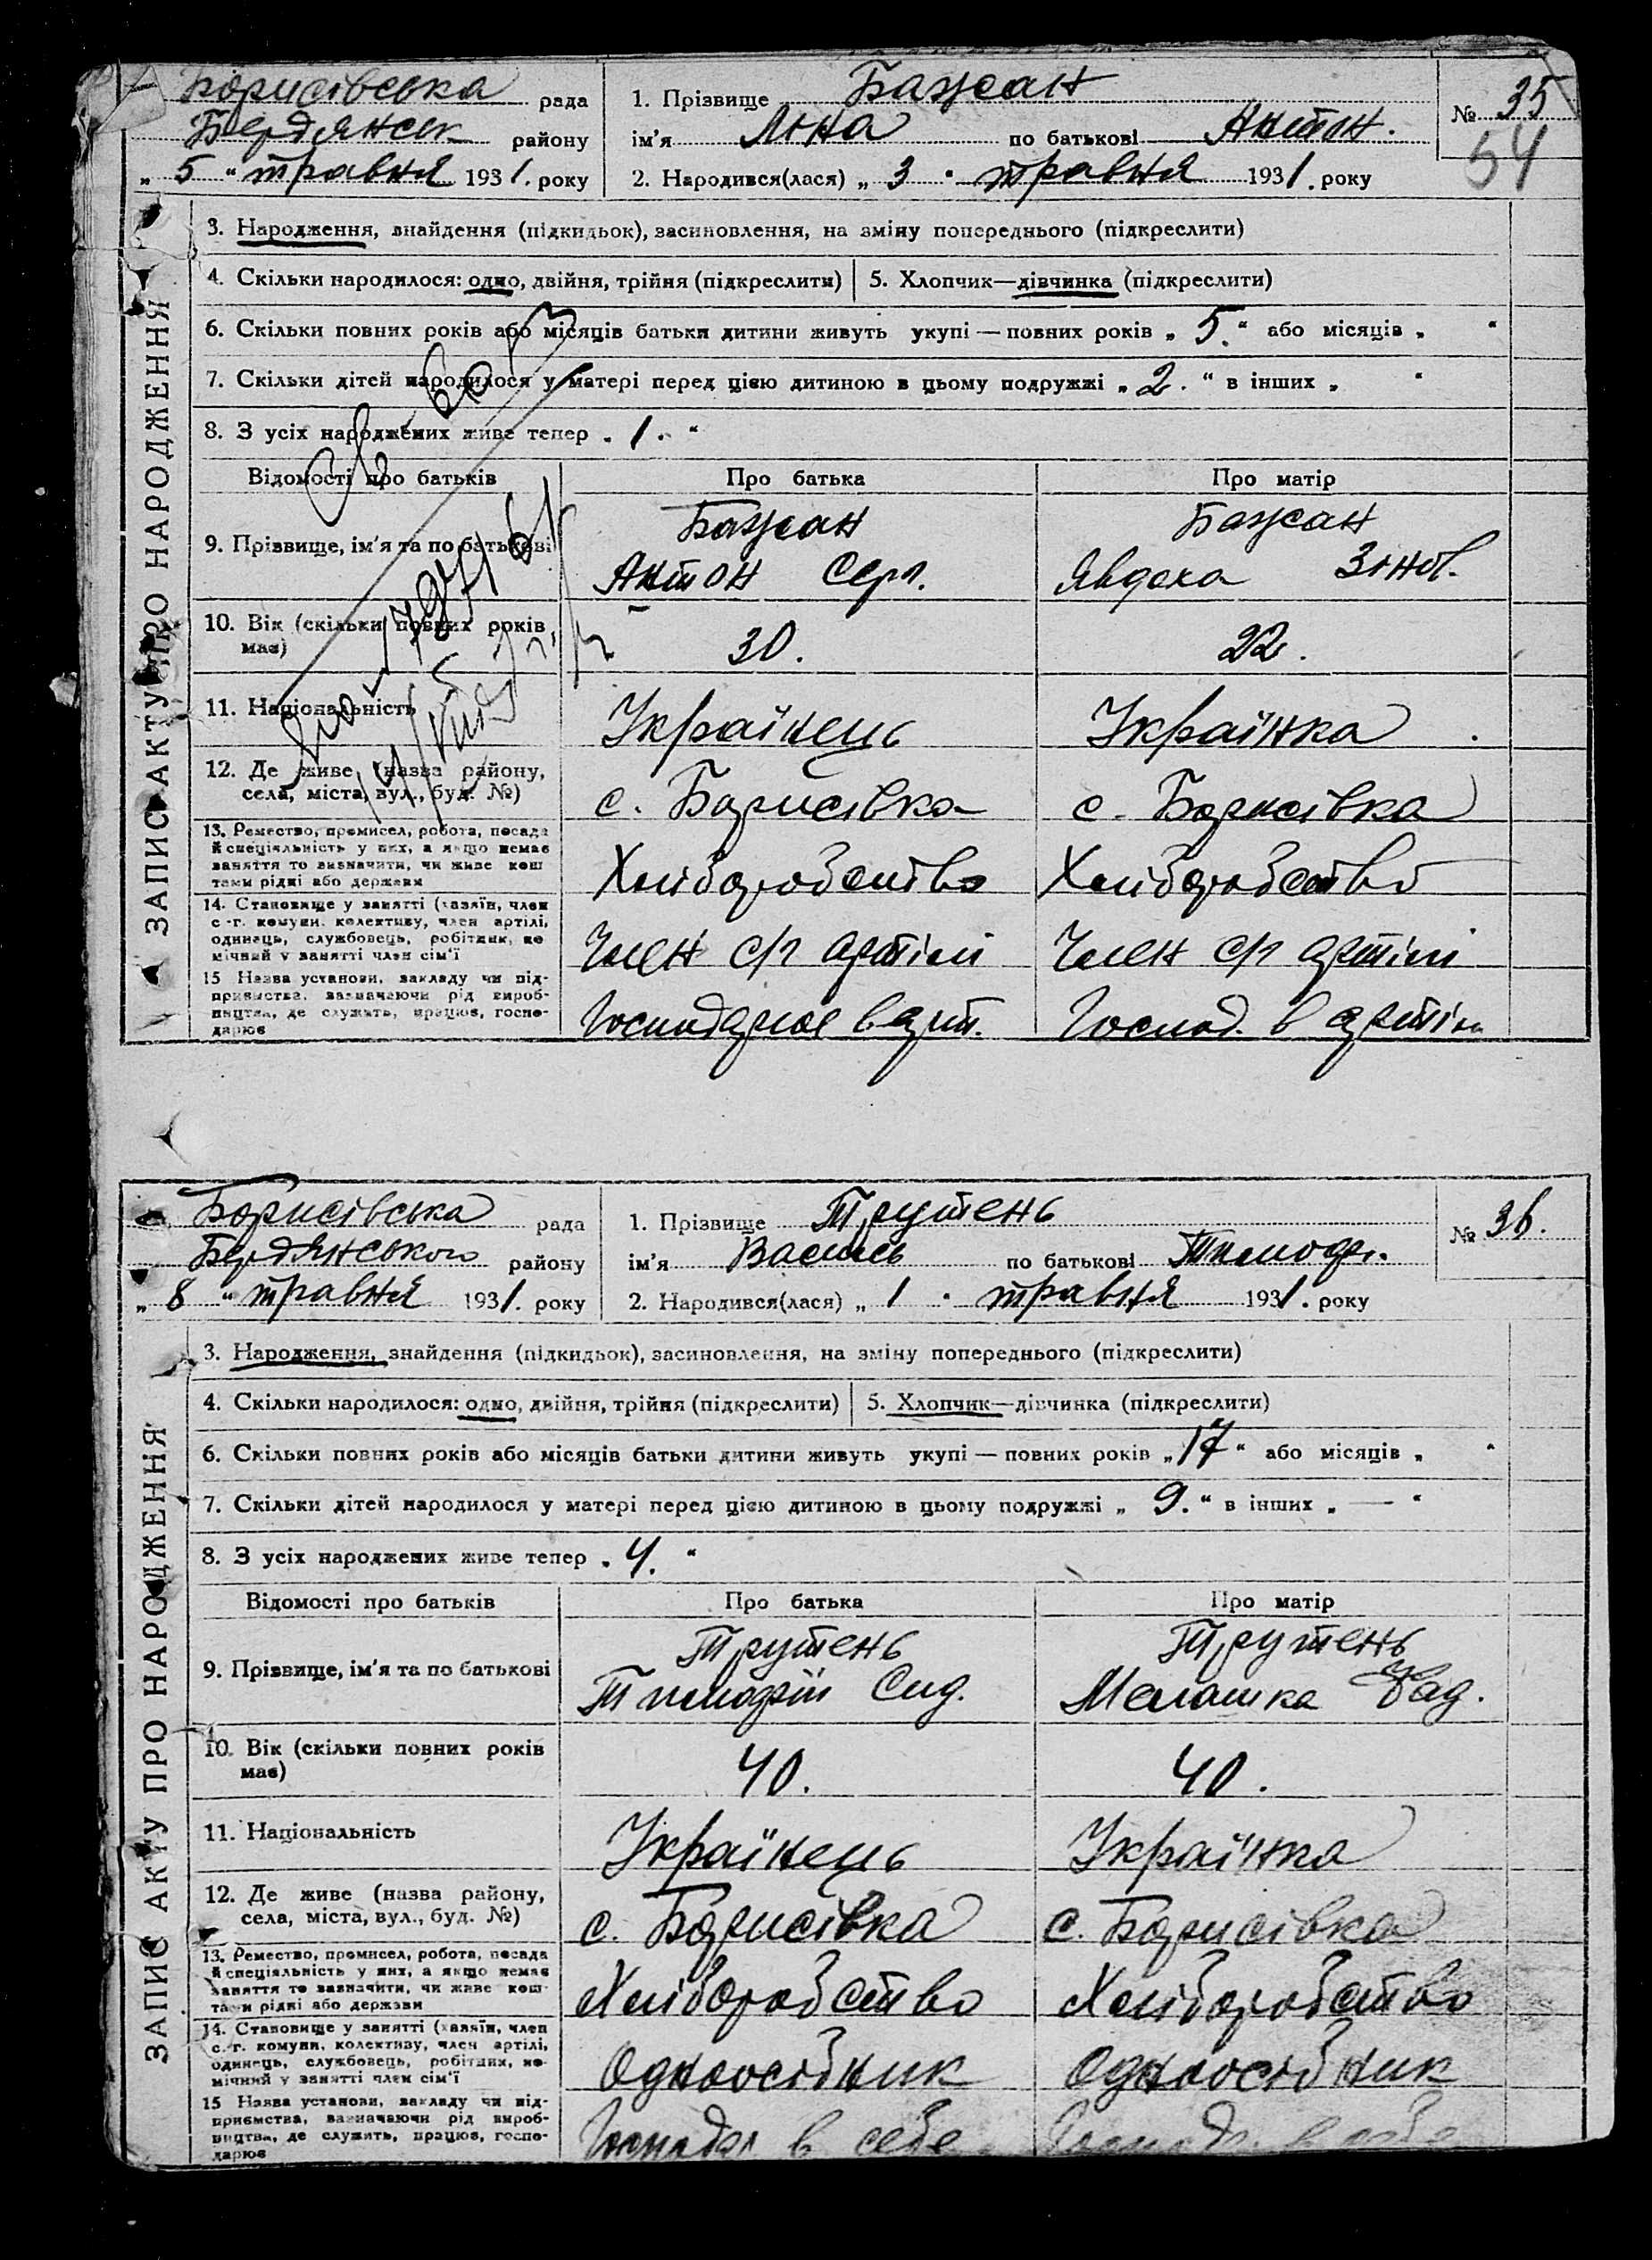 Борисівська рада
Бердянськ району
„ 5 “ травня 1931. року
1. Прізвище Бажан
ім'я Ліна по батькові Антон.
2. Народився(лася) „ 3 “ травня 1931. року
№ 35
54
ЗАПИС АКТУ ПРО НАРОДЖЕННЯ
3. Народження, знайдення (підкидьок), засиновлення, на зміну попереднього (підкреслити)
4. Скільки народилося: одно, двійня, трійня (підкреслити) 5. Хлопчик—дівчинка (підкреслити)
6. Скільки повних років або місяців батьки дитини живуть укупі — повних років „ 5. “ або місяців „ “
7. Скільки дітей народилося у матері перед цією дитиною в цьому подружжі „ 2. “ в інших „ “
8. З усіх народжених живе тепер „ 1. “
Відомості про батьків Про батька Про матір
9. Прізвище, ім'я та по батькові
Бажан Бажан
Антон Серг. Явдоха Зінов.
10. Вік (скільки повних років має) 30. 22.
11. Національність Українець Українка
12. Де живе (назва району,
села, міста, вул., буд. №) с. Борисівка с. Борисівка
13. Ремество, промисел, робота, посада
й спеціяльність у них, а якщо немає
заняття то визначити, чи живе кош
тами рідні або держави Хліборобство Хліборобство
14. Становище у занятті (хазяїн, член
с.-г. комуни, колективу, член артілі,
одинець, службовець, робітник, по
мічний у занятті член сім'ї Член с/г артілі Член с/г артілі
15 Назва установи, закладу чи під-
приємства, зазначаючи рід вироб-
ництва, де служить, працює, госпо-
дарює Господарює в арт. Господ. в артілі
Борисівська рада
Бердянського району
„ 8 “ травня 1931. року
1. Прізвище Трутень
ім'я Василь по батькові Тимофі.
2. Народився(лася) „ 1 “ травня 1931. року
№ 36.
ЗАПИС АКТУ ПРО НАРОДЖЕННЯ
3. Народження, знайдення (підкидьок), засиновлення, на зміну попереднього (підкреслити)
4. Скільки народилося: одно, двійня, трійня (підкреслити) 5. Хлопчик—дівчинка (підкреслити)
6. Скільки повних років або місяців батьки дитини живуть укупі — повних років „ 17 “ або місяців „ “
7. Скільки дітей народилося у матері перед цією дитиною в цьому подружжі „ 9. “ в інших „ — “
8. З усіх народжених живе тепер „ 4. “
Відомості про батьків Про батька Про матір
9. Прізвище, ім'я та по батькові
Трутень Трутень
Тимофій Сид. Мелашка
10. Вік (скільки повних років
має) 40. 40.
11. Національність Українець Українка
12. Де живе (назва району,
села, міста, вул., буд. №) с. Борисівка с. Борисівка
13. Ремество, промисел, робота, посада
й спеціяльність у них, а якщо немає
заняття то зазначити, чи живе кош-
тами рідні або держави Хліборобство Хліборобство
14. Становище у занятті (хазяїн, член
с.-г. комуни, колективу, член артілі,
одинець, службовець, робітник, по-
мічний у занятті член сім'ї Одноосібник Одноосібник
15 Назва установи, закладу чи під-
приємства, зазначаючи рід вироб-
ництва, де служить, працює, госпо-
дарює Господар в себе Господ. в себе